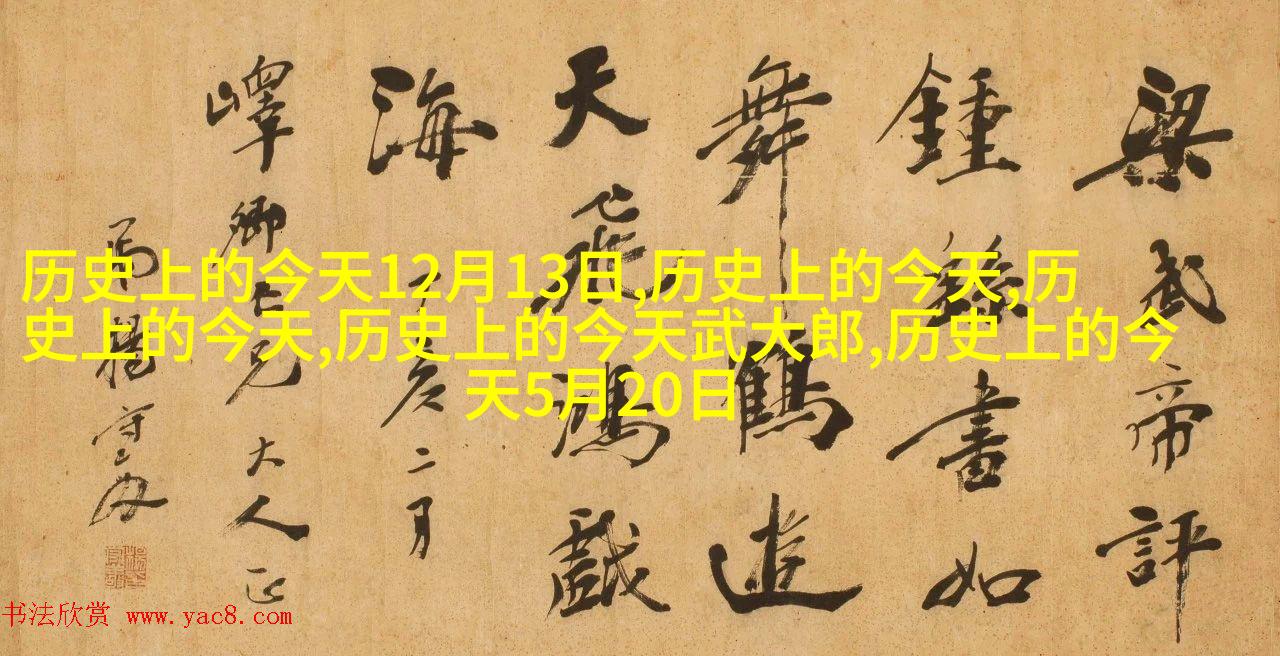 梁武帝評
鍾繇書如
舞鶴遊
天飛鴻戲
海
丁亥二月
嶧卿七兄大人正
弟楊守敬
历史上的今天12月13日,历史上的今天,历
史上的今天,历史上的今天武大郎,历史上的今
天5月20日
书法欣赏 www.yac8.com